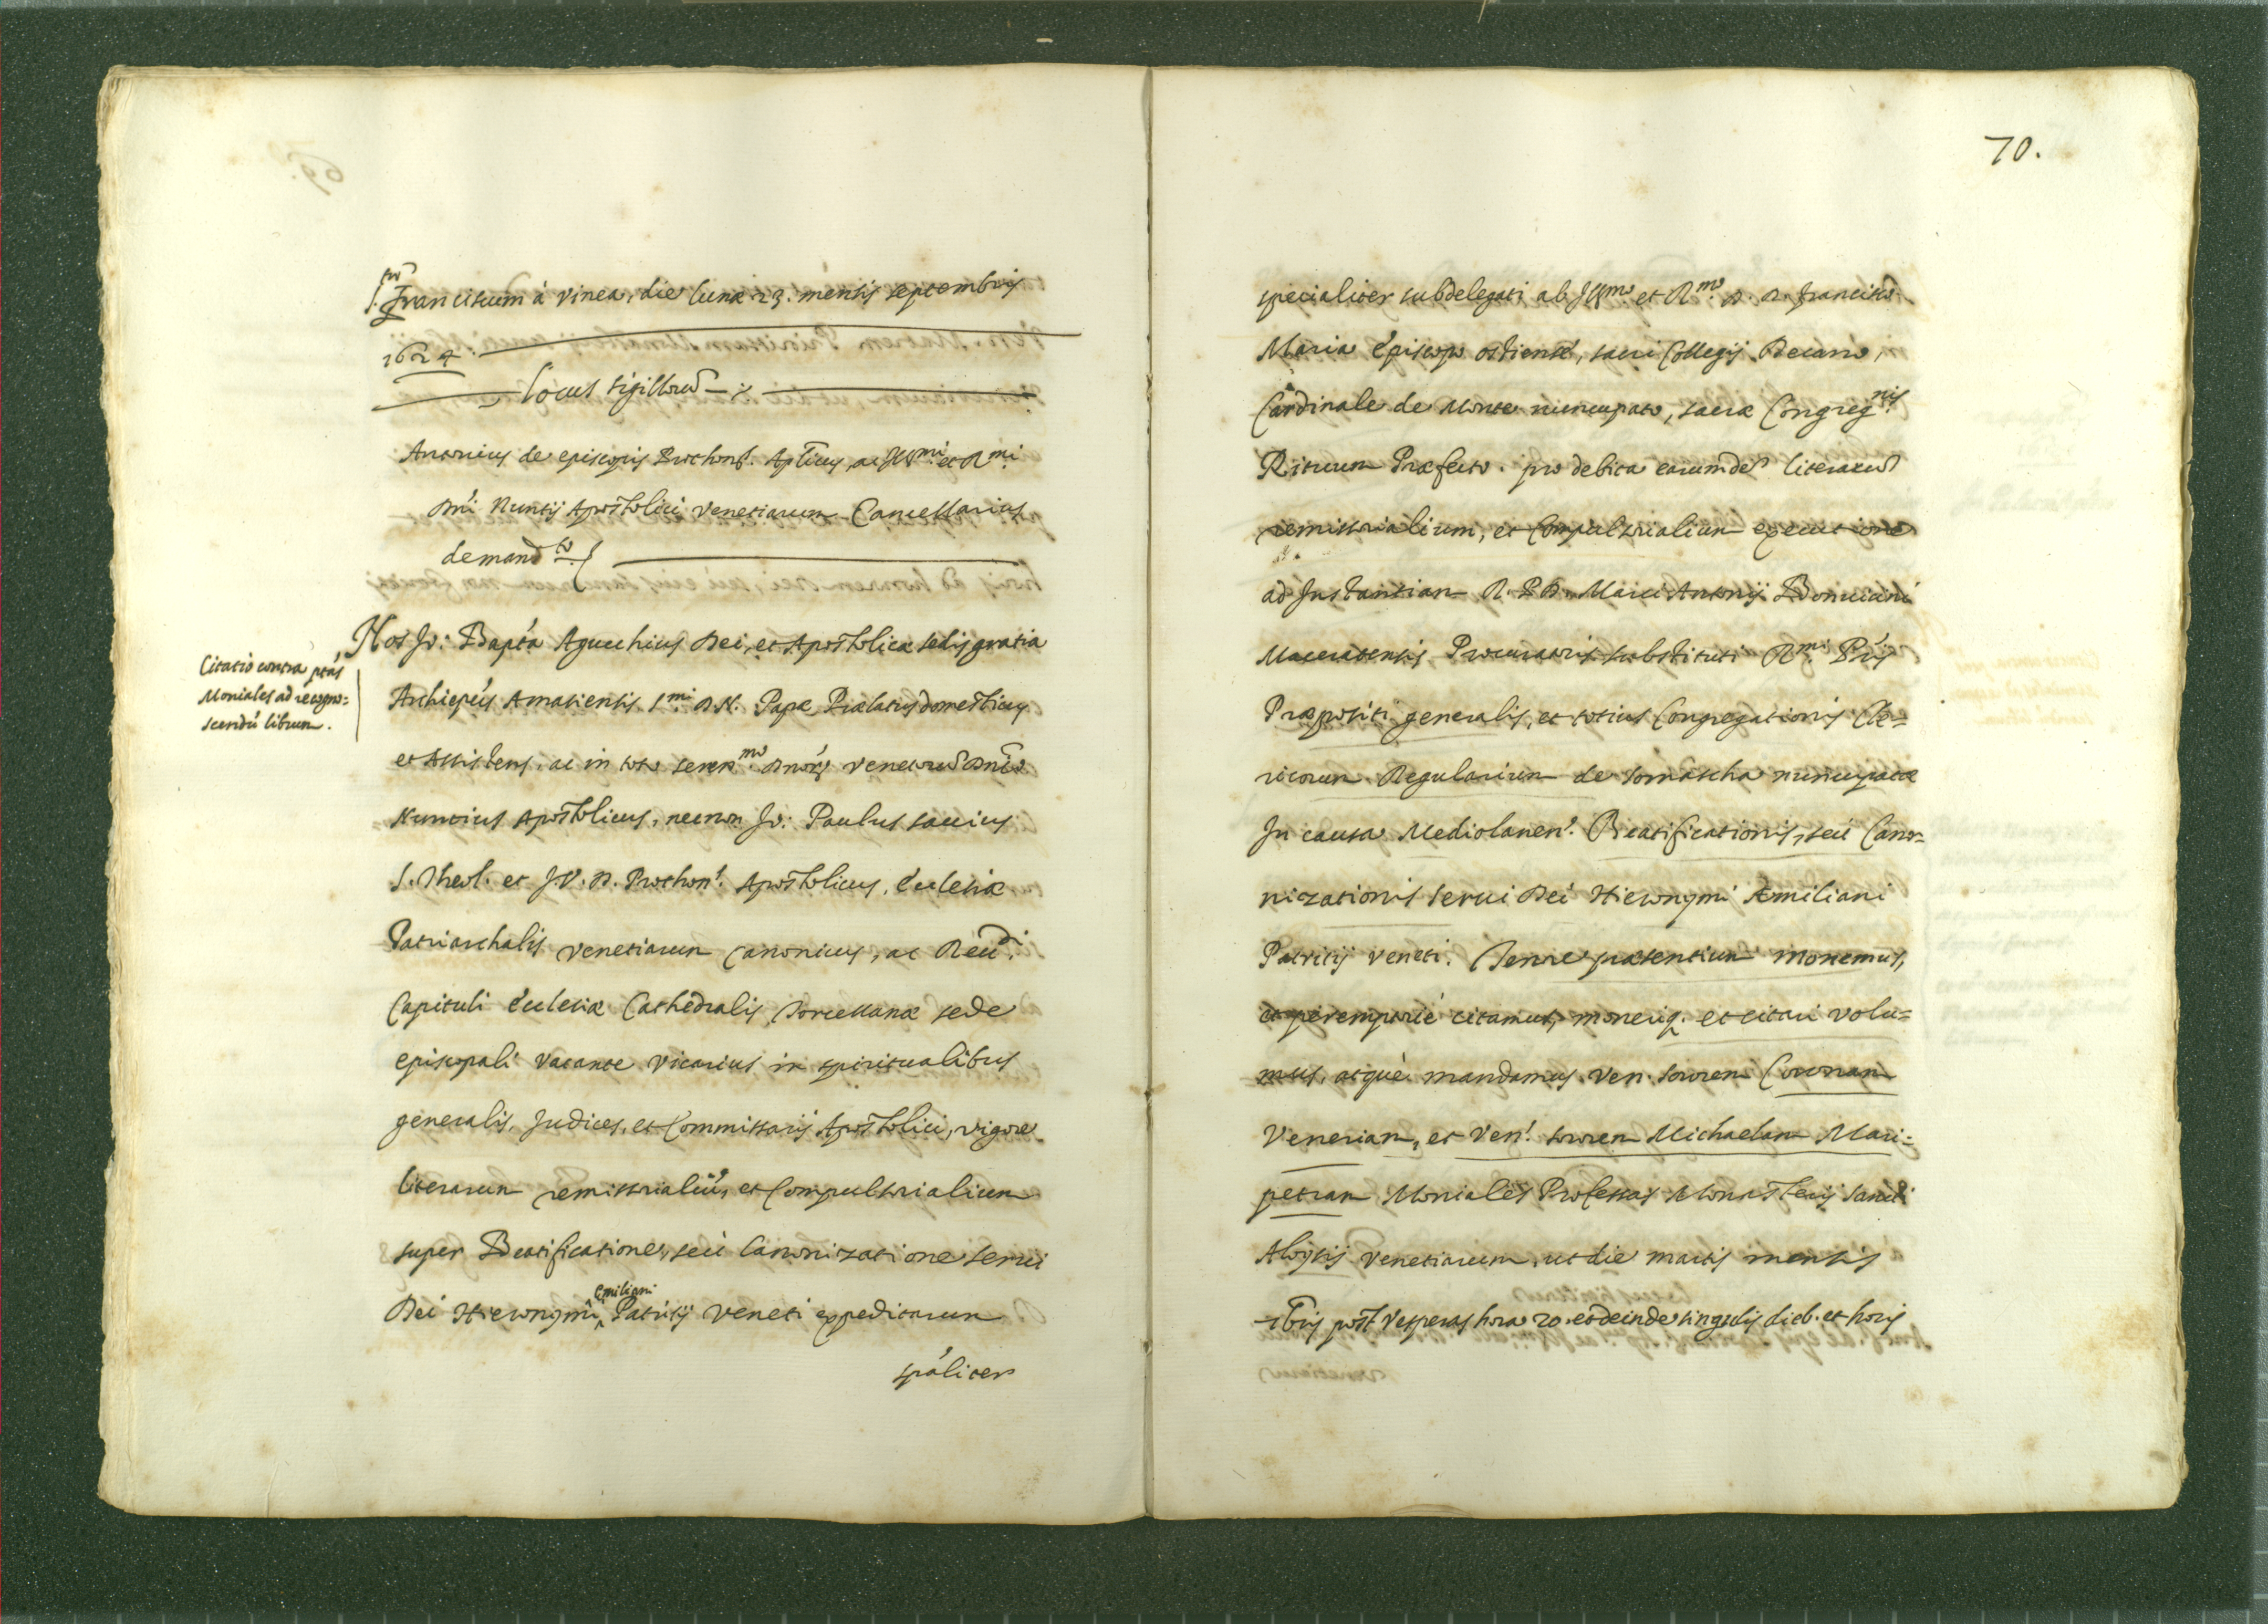 S. Franciscum à Vinea, die lunæ 23. mensis septembris
1624.
Locus sigillorũ
Antonius de episcopis Prothonot. Aplicus, ac Illmi et Rmi
Dni Nuntij Apostolici Venetiarum Cancellarius
demandto
Citatio contra ptas
Moniales ad recogno=
scendũ librum.
Nos Jo: Bapta Agucchius Dei, et Apostolicæ sedis gratia
Archiepus Amasiensis Smi D. N. Papæ Prælatus domesticus
et Assistens, ac in toto serenmo Dnorũ Venetorũ Dnio
Nuncius Apostolicus, necnon Jo: Paulus savius
S. Theol. et J. V. D. Prothont. Apostolicus, Ecclesiæ
Patriarchalis Venetiarum Canonicus, ac Reudi
Capituli Ecclesiæ Cathedralis Torcellanæ sede
episcopali vacante vicarius in spiritualibus
generalis, Judices, et Commissarij Apostolici, vigore
literarum remissorialiũ, et Compulsorialium
super Beatificatione, seù Canonizatione serui
Dei Hieronymi Emiliani Patritij Veneti expeditarum
spaliter
70.
specialiter subdelegati ab Illmo et Rmo D. D. Francisco
Maria Episcopo ostiense, sacri Collegij Decano,
Cardinale de Monte nuncupato, sacræ Congregnis
Rituum Præfecto. pro debita earumdẽ literarũ
remissorialium, et Compulsorialium executione
ad Instantiam R. P. D. Marci Antonij Bonciani
Maceratensis Procuratoris substituti Rmi Pris
Præpositi generalis, et totius Congregationis Cle=
ricorum Regularium de somascha nuncupatæ
In causa Mediolanen. Beatificationis, seù Cano=
nizationis serui Dei Hieronymi Æmiliani
Patritij Veneti. Tenore præsentium monemus,
et peremptoriè citamus, moneriq. et citari volu=
mus, atquè mandamus Ven. sororem Coronam
Veneriam, et Ven. sororem Michaelam Mari=
petram Moniales Professas Monasterij sancti
Aloysij Venetiarum, ut die martis mensis
-bris post Vesperas hora 20. et deinde singulis dieb. et horis